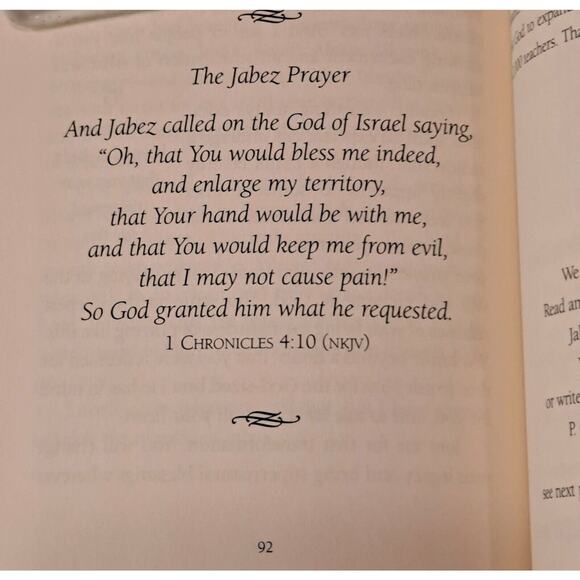 The Jabez Prayer
And Jabez called on the God of Israel saying,
“Oh, that You would bless me indeed,
and enlarge my territory,
that Your hand would be with me,
and that You would keep me from evil,
that I may not cause pain!”
So God granted him what he requested.
1 CHRONICLES 4:10 (NKJV)
92
God to expand
teachers. Tha
We
Read an
Ja
or write
P.
see next